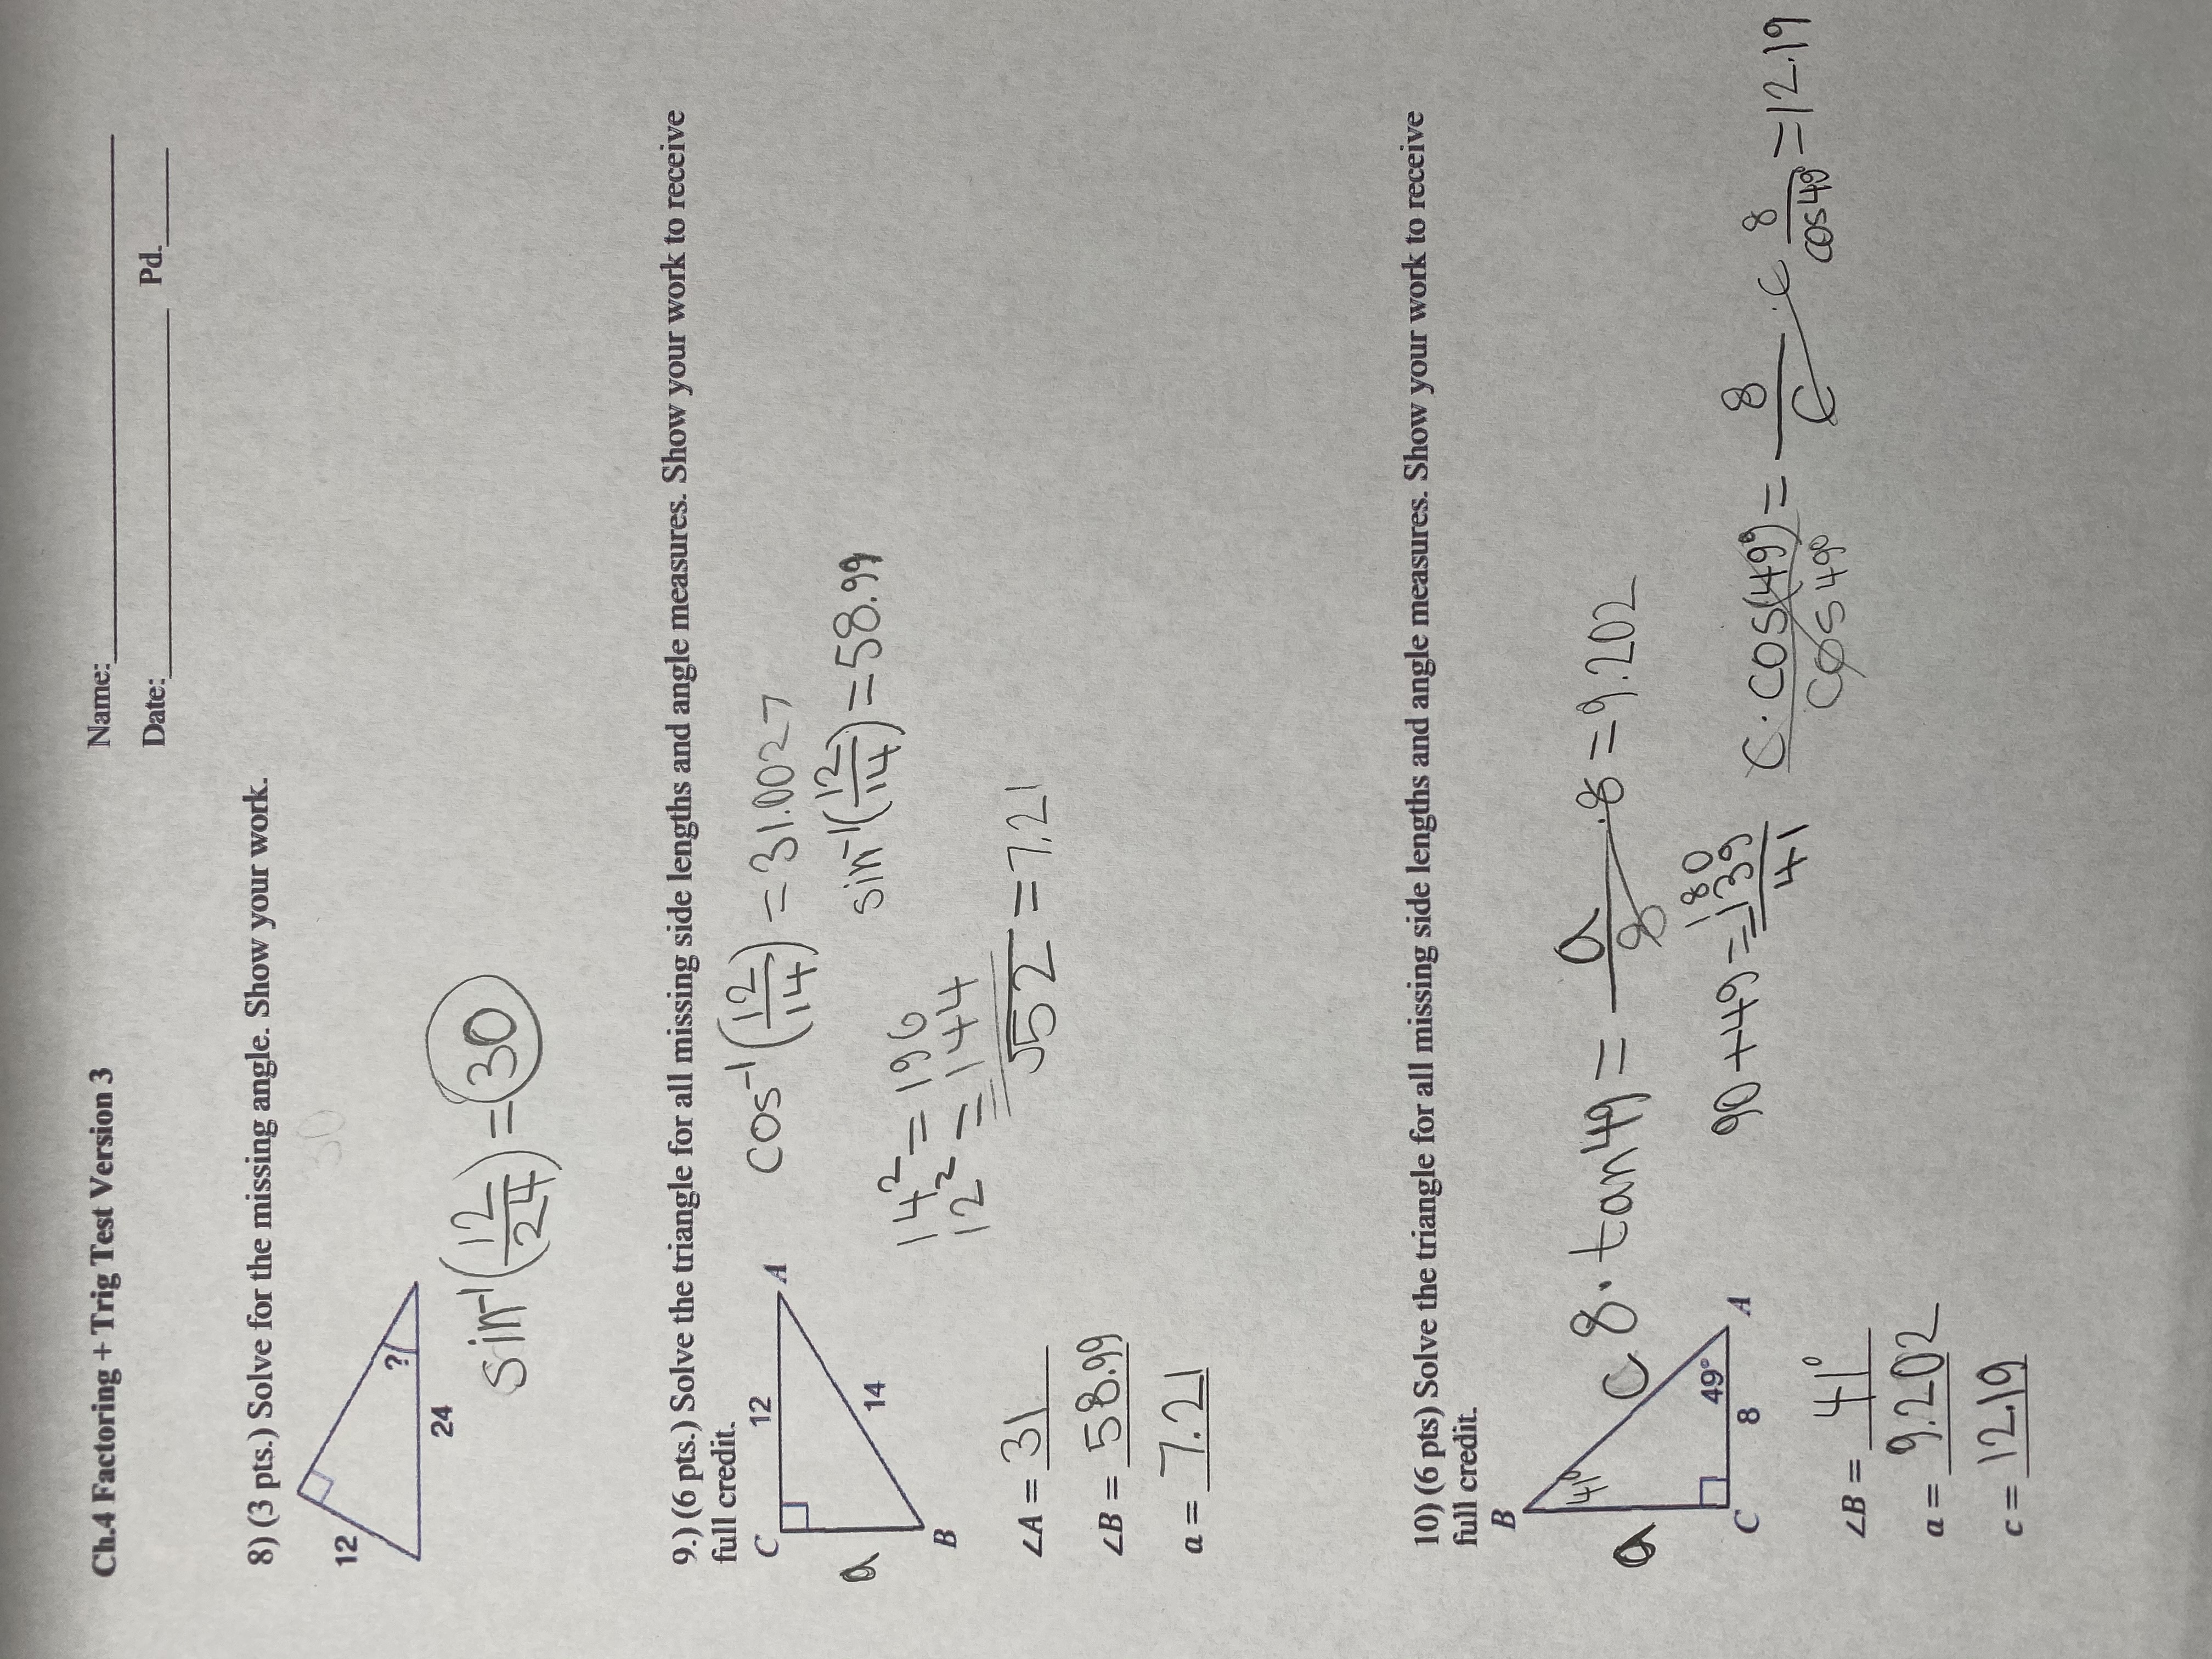 Ch.4 Factoring + Trig Test Version 3
Name:
Date: Pd.
8) (3 pts.) Solve for the missing angle. Show your work.
30
12
?
24
sin⁻¹(12/24) = 30
9.) (6 pts.) Solve the triangle for all missing side lengths and angle measures. Show your work to receive
full credit.
C 12 A
a
14
B
cos⁻¹(12/14) = 31.0027
sin⁻¹(12/14) = 58.99
14² = 196
12² = 144
√52 = 7.21
∠A = 31
∠B = 58.99
a = 7.21
10) (6 pts) Solve the triangle for all missing side lengths and angle measures. Show your work to receive
full credit.
B
41°
a
c
49°
C 8 A
8 · tan 49 = a/8 · 8 = 9.202
180
90 + 49 = 139
41
c · cos(49°)/cos 49° = 8/c · c
8/cos 49° = 12.19
∠B = 41°
a = 9.202
c = 12.19